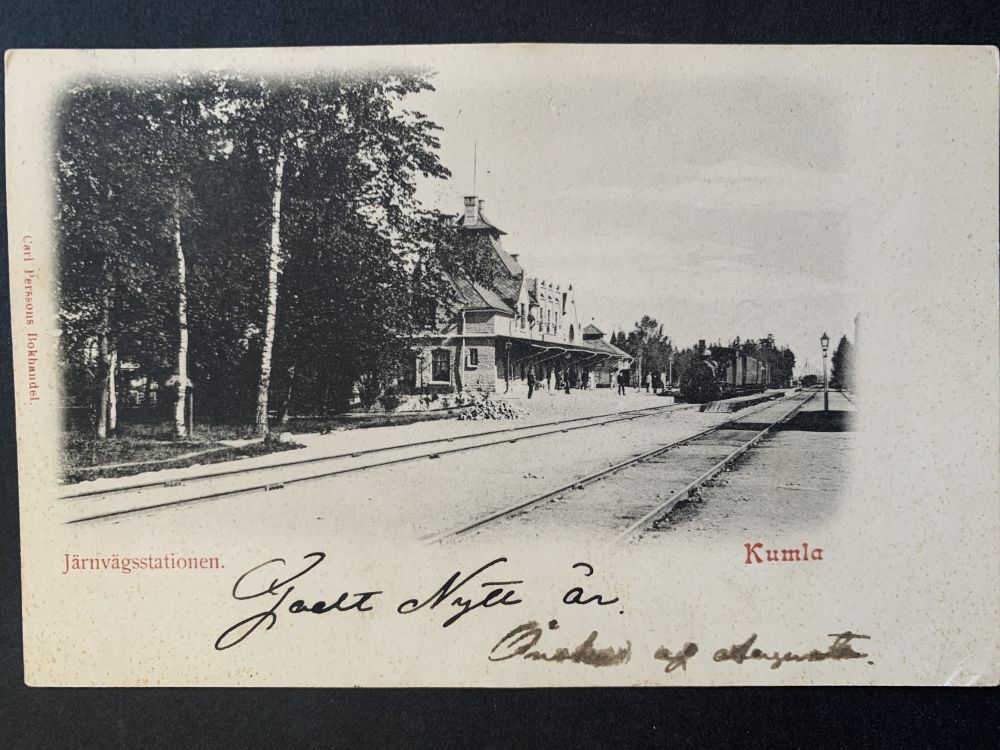 Carl Perssons Bokhandel.
Järnvägsstationen.
Kumla
Godt Nytt år.
Önskas af Augusta.